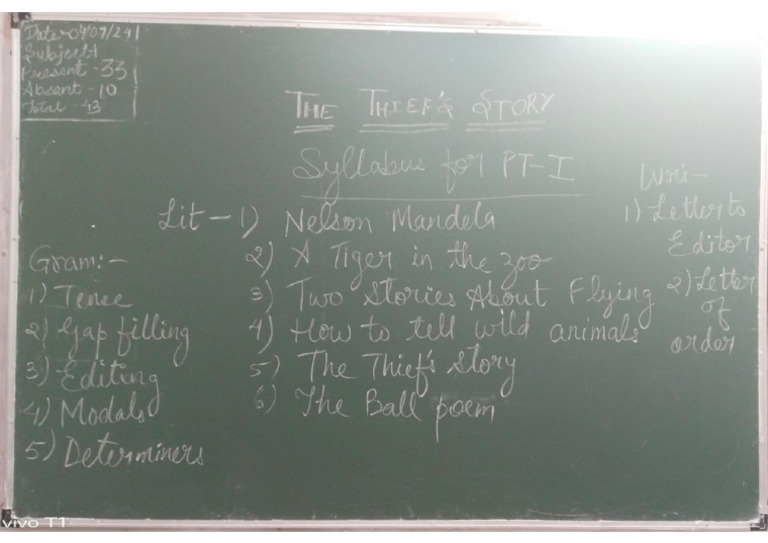 Date-04/07/24
Subject
Present - 33
Absent - 10
Total - 43
THE THIEF'S STORY
Syllabus for PT-I
Lit - 1) Nelson Mandela
2) A Tiger in the zoo
3) Two Stories About Flying
4) How to tell wild animals
5) The Thief's story
6) The Ball poem
Gram:-
1) Tense
2) Gap filling
3) Editing
4) Modals
5) Determiners
Wri-
1) Letter to
Editor
2) Letter
of
order
vivo T1